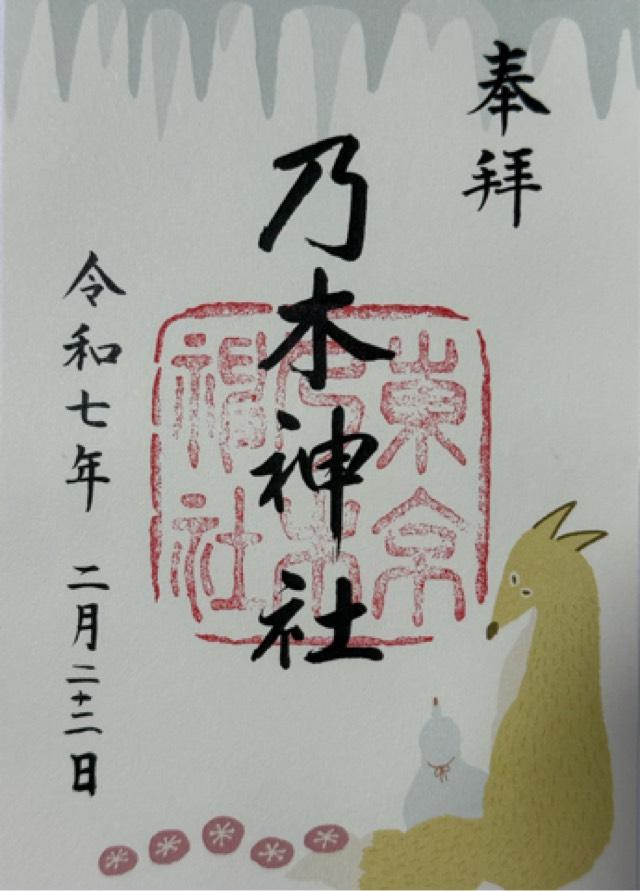 奉拝
乃木神社
東京
乃木
神社
令和七年 二月二十二日